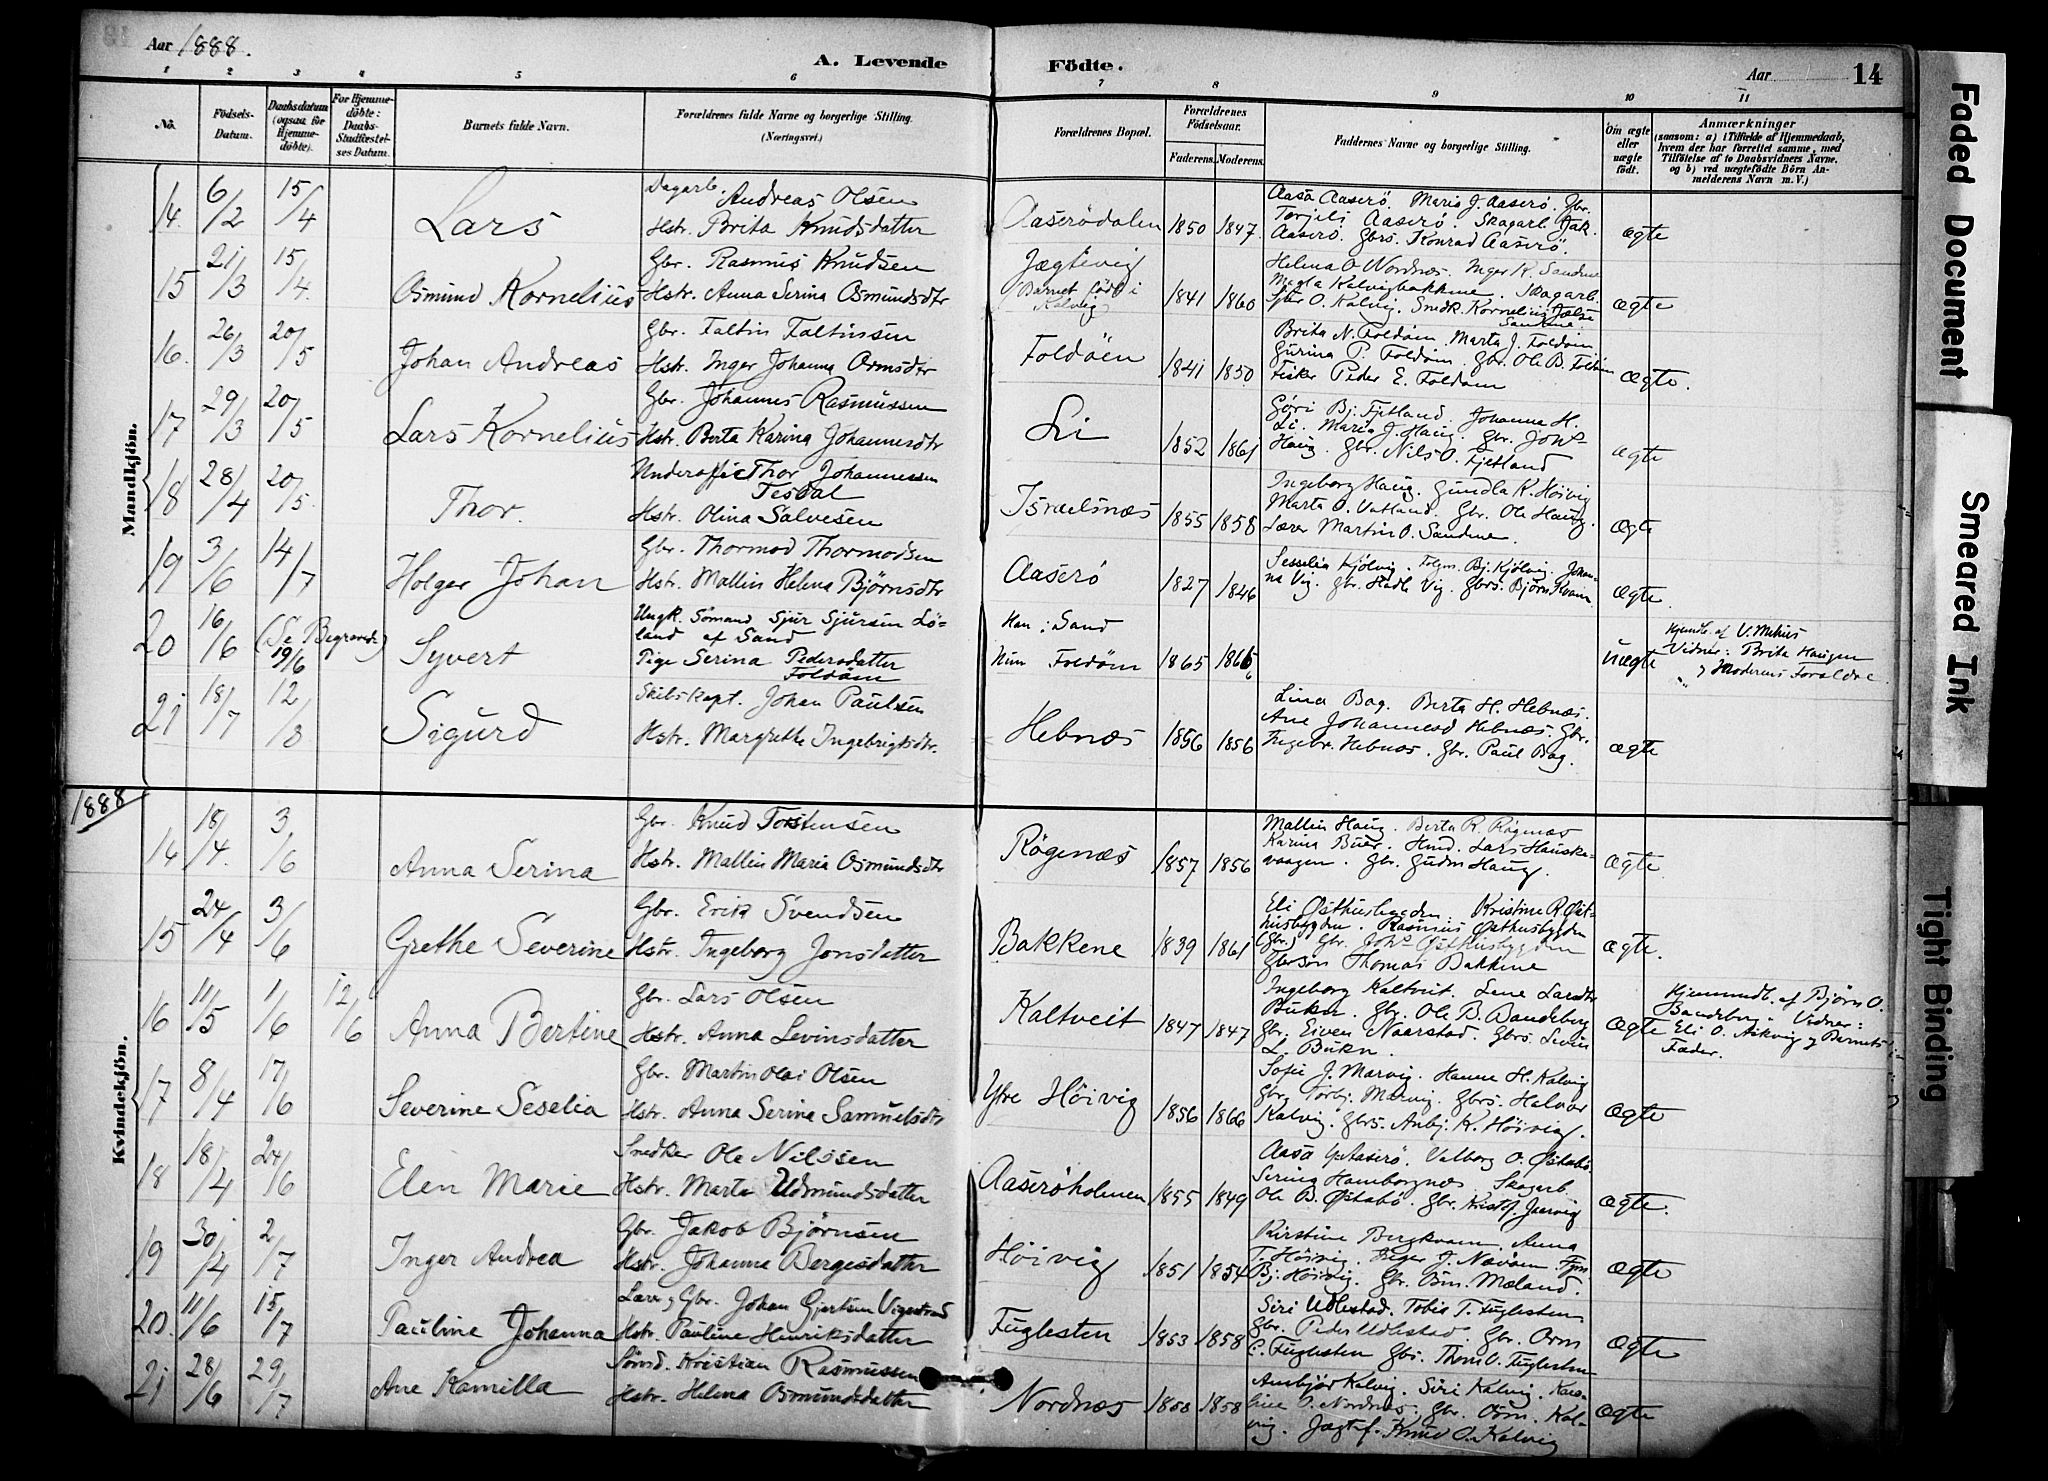 Aar 1888.
A. Levende Födte.
Aar 14
1 2 3 4 5 6 7 8 9 10 11
No. Födsels-Datum. Daabsdatum (ogsaa for Hjemmedöbte). For Hjemmedöbte: Daabs-Stadfæstelses Datum. Barnets fulde Navn. Forældrenes fulde Navne og borgerlige Stilling. (Næringsvei.) Forældrenes Bopæl. Forældrenes Födselsaar. Faderens. Moderens. Faddernes Navne og borgerlige Stilling. Om ægte eller uægte födt. Anmærkninger (saasom: a) i Tilfælde af Hjemmedaab, hvem der har forrettet samme, med Tilföielse af to Daabsvidners Navne, og b) ved uægtefödte Börn Anmelderens Navn m. V.)
Mandkjön.
14. 6/2 15/4 Lars Dagarb. Andreas Olsen
Hstr. Brita Knudsdatter Aaserödalen 1850 1847. Aasa Aaserö. Maria J. Aaserö. Gbr.
Torjels Aaserö. Skagarb. Jak.
Aaserö. Gbrs. Konrad Aaserö. ægte
15 21/3 15/4. Osmund Kornelius Gbr. Rasmus Knudsen
Hstr. Anna Serina Osmundsdtr Jægtevig
(Barnet född i
Kalvig) 1841 1860 Helena O. Nordnæs. Inger K. Sandene
Kalvigbakkene. Skagarb.
Sjur O. Kalvig. Snedk. Kornelius Jælse
Sandene. ægte
16. 26/3 20/5 Johan Andreas Gbr. Faltin Faltinsen
Hstr. Inger Johanna Ormsdtr Foldöen 1841 1850 Brita N. Foldöen. Marta J. Foldöen
Gurina P. Foldöen Gbr. Ole B. Foldöen
Fisker Peder E. Foldöen ægte.
17 29/3 20/5 Lars Kornelius Gbr. Johannes Rasmussen
Hstr. Berta Karina Johannesdtr Li 1852 1861 Göri Bj. Fjetland. Johanna H.
Li. Maria J. Haug. Gbr. Johs
Haug. Gbr. Nils O. Fjetland ægte
18 28/4 20/5. Thor. Underoffic Thor Johannessen
Tesdal
Hstr. Olina Salvesen Israelsnæs 1855 1858 Ingeborg Haug. Gundla K. Höivig
Marta O. Vatland. Gbr. Ole Haug.
Lærer Martin O. Sandene. ægte
19 3/6 14/7 Holger Johan Gbr. Thormod Thormodsen
Hstr. Mallin Helena Björnsdtr Aaserö 1827 1846 Sesselia Kjölvig. Folgm. Bj. Kjölvig. Johan-
na Vig. Gbr. Hadle Vig. Gbrs. Björn Kvam ægte
20 16/6 (Se Begravede) 19/6 Syvert Ungk. Sömand Sjur Sjursen Lö-
land af Sand
Pige Serina Pedersdatter
Foldöen Han: Sand
Hun Foldöen 1865 1866 uægte Hjemdb. af V. Mehus
Vidner: Brita Haugen
og Moderens Forældre
21 18/7 12/8 Sigurd Skibskapt. Johan Paulsen
Hstr. Margrethe Ingebrigtsdtr. Hebnæs 1856 1856 Lina Bag. Berta H. Hebnæs.
Ane Johannesd Hebnæs. Gbr.
Ingebr. Hebnæs. Gbr. Paul Bag. ægte
1888
Kvindekjön.
14 18/4. 3/6 Anna Serina Gbr. Knud Torstensen
Hstr. Mallin Maria Osmundsdtr Rögenæs 1857 1856 Mallin Haug. Berta R. Rögenæs
Karina Buer. Hmd. Lars Hauske-
vaagen. Gbr. Gudm Haug. ægte
15 24/4 3/6 Grethe Severine Gbr. Erik Svendsen
Hstr. Ingeborg Jonsdatter Bakkene 1839 1861 Eli Östhusbygden. Kristine R. Öst-
husbygden. Rasmus Östhusbygden
(Gbr.) Gbr. Johs Östhusbygden
Gbrsön Thomas Bakkene ægte.
16 11/5 1/6 12/6 Anna Bertine Gbr. Lars Olsen
Hstr. Anna Levinsdatter Kaltveit 1847 1847 Ingeborg Kaltveit. Lene Larsdtr
Buken. Gbr. Ole B. Bandeberg
Gbr. Eiven Naarstad. Gbrs. Levin
L. Bukn. ægte Hjemmedb. af Björn O.
Bandeberg. Vidner:
Eli O. Askvig og Barnets
Fader.
17 8/4 17/6 Severine Seselia Gbr. Martin Olai Olsen
Hstr. Anna Serina Samuelsdtr Ytre Höivig 1856 1866 Sofie J. Marvig. Hanne H. Kalvig
Gbr. Torbj. Marvig. Gbrs. Halvor
Kalvig. Gbrs. Anbj. K. Höivig. ægte
18 18/4 24/6 Elen Marie Snedker Ole Nilssen
Hstr. Marta Udmundsdatter Aaseröholmen 1855 1849 Aasa Aaserö. Valborg O. Östabö.
Serina Hamborgnæs. Skagarb.
Ole B. Östabö. Gbr. Kristof. Jærvig ægte.
19 30/4 2/7 Inger Andrea Gbr. Jakob Björnsen
Hstr. Johanna Bergesdatter Höivig 1851 1854 Kirstine Bergkvam. Anna
T. Höivig. Inger J. Nævöen.
Bj. Höivig. Gbr. Osm. Mæland. ægte
20. 11/6 15/7 Pauline Johanna Lær. og Gbr. Johan Gjertsen Vigestrad
Hstr. Pauline Henriksdatter Fuglesten 1853 1858 Siri Udlestad. Tobia T. Fuglesten
Gbr. Peder Udlestad. Gbr. Orm
E. Fuglesten Gbs. Thom O. Fuglesten ægte
21 28/6 29/7 Ane Kamilla Sömd. Kristian Rasmussen
Hstr. Helena Osmundsdatter Nordnæs 1858 1858 Ansbjör Kalvig. Siri Kalvig. Karo-
line O. Nordnæs. Gbr. Osm. Kal-
vig. Jægtef. Knud O. Kalvig ægte
Faded Document
Smeared Ink
Tight Binding